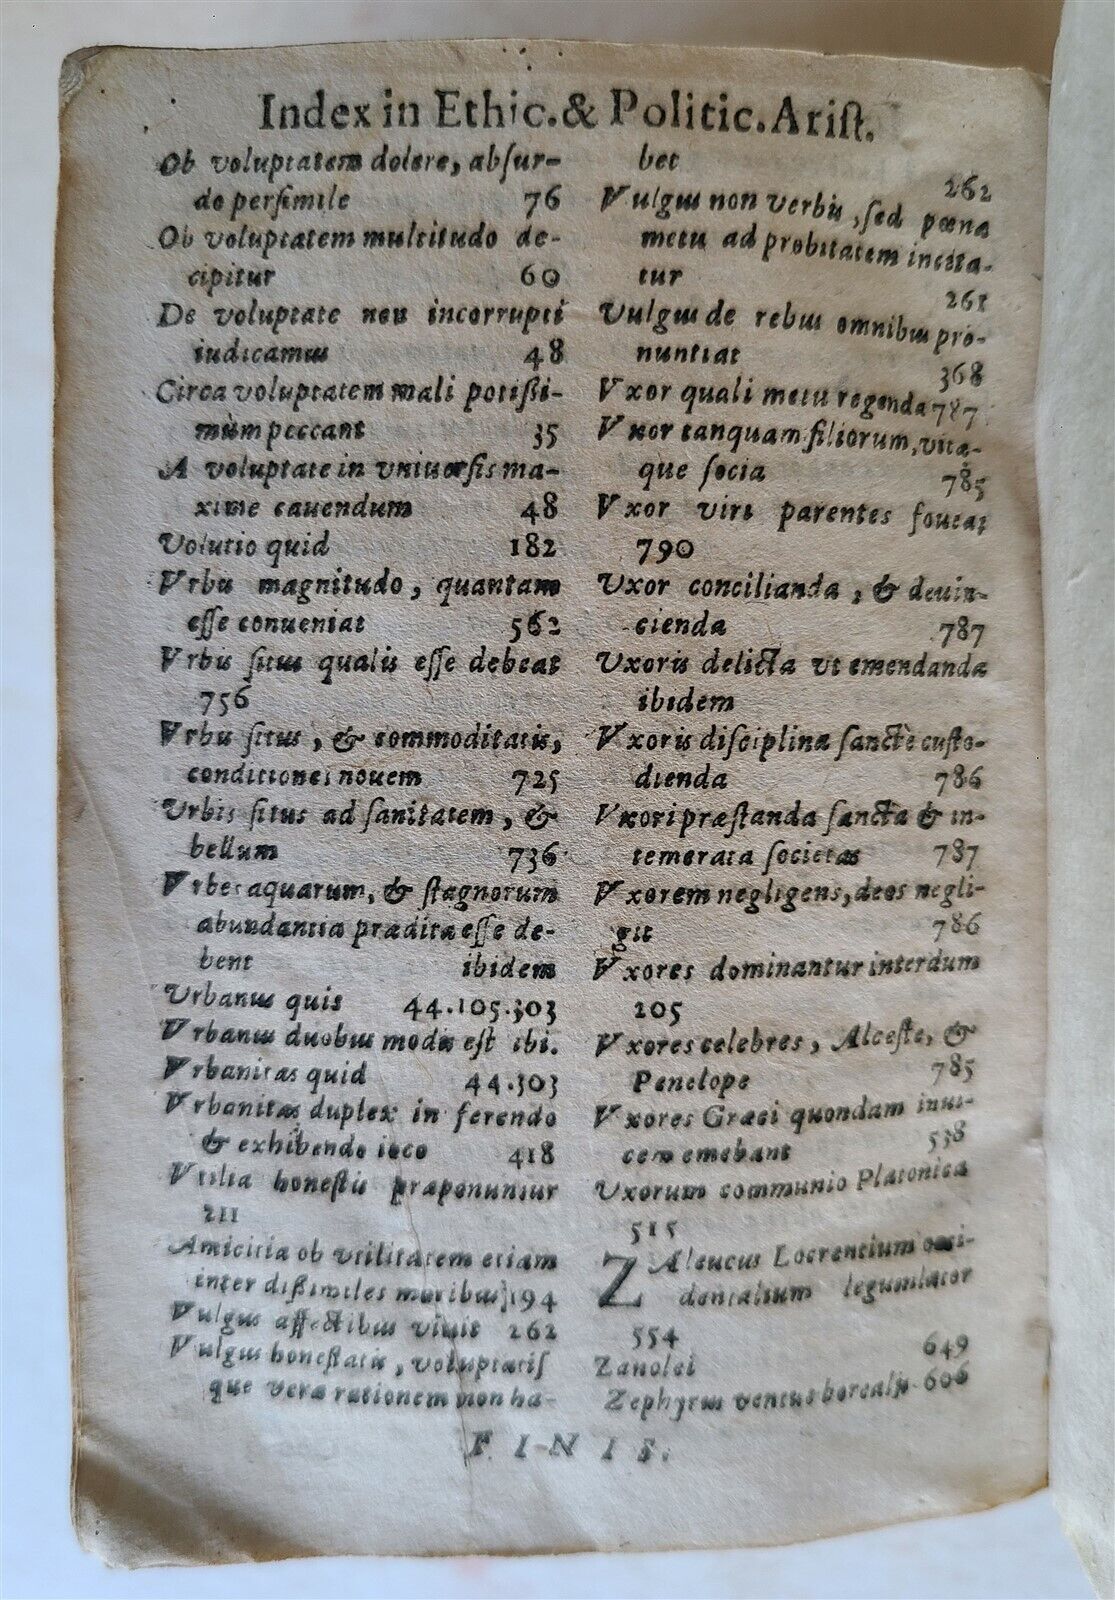 Index in Ethic. & Politic. Arist.
Ob voluptatem dolere, absur-
do persimile 76
Ob voluptatem multitudo de-
cipitur 60
De voluptate non incorrupti
iudicamus 48
Circa voluptatem mali potissi-
mùm peccant 35
A voluptate in vniuersis ma-
xime cauendum 48
Volutio quid 182
Vrbis magnitudo, quantam
esse conueniat 562
Vrbis situs qualis esse debeat
756
Vrbis situs, & commoditatis,
conditiones nouem 725
Urbis situs ad sanitatem, &
bellum 736
Vrbes aquarum, & stagnorum
abundantia prædita esse de-
bent ibidem
Urbanus quis 44.105.303
Vrbanus duobus modis est ibi.
Vrbanitas quid 44.303
Vrbanitas duplex in ferendo
& exhibendo ioco 418
Vtilia honestis præponuntur
211
Amicitia ob vtilitatem etiam
inter dissimiles moribus 194
Vulgus affectibus viuit 262
Vulgus honestatis, voluptatis
que veræ rationem non ha-
bet 262
Vulgus non verbis, sed pœnæ
metu ad probitatem incita-
tur 261
Vulgus de rebus omnibus pro-
nuntiat 368
Vxor quali metu regenda 787
Vxor tanquam filiorum, vitæ-
que socia 785
Vxor viri parentes foueat
790
Uxor concilianda, & deuin-
cienda 787
Uxoris delicta ut emendanda
ibidem
Vxoris disciplina sanctè custo-
dienda 786
Vxori præstanda sancta & in-
temerata societas 787
Vxorem negligens, deos negli-
git 786
Vxores dominantur interdum
205
Vxores celebres, Alceste, &
Penelope 785
Vxores Græci quondam inui-
cem emebant 538
Uxorum communio Platonica
515
ZAleucus Locrensium occi-
dentalium legumlator
554
Zanolei 649
Zephyrus ventus borealis 606
FINIS.